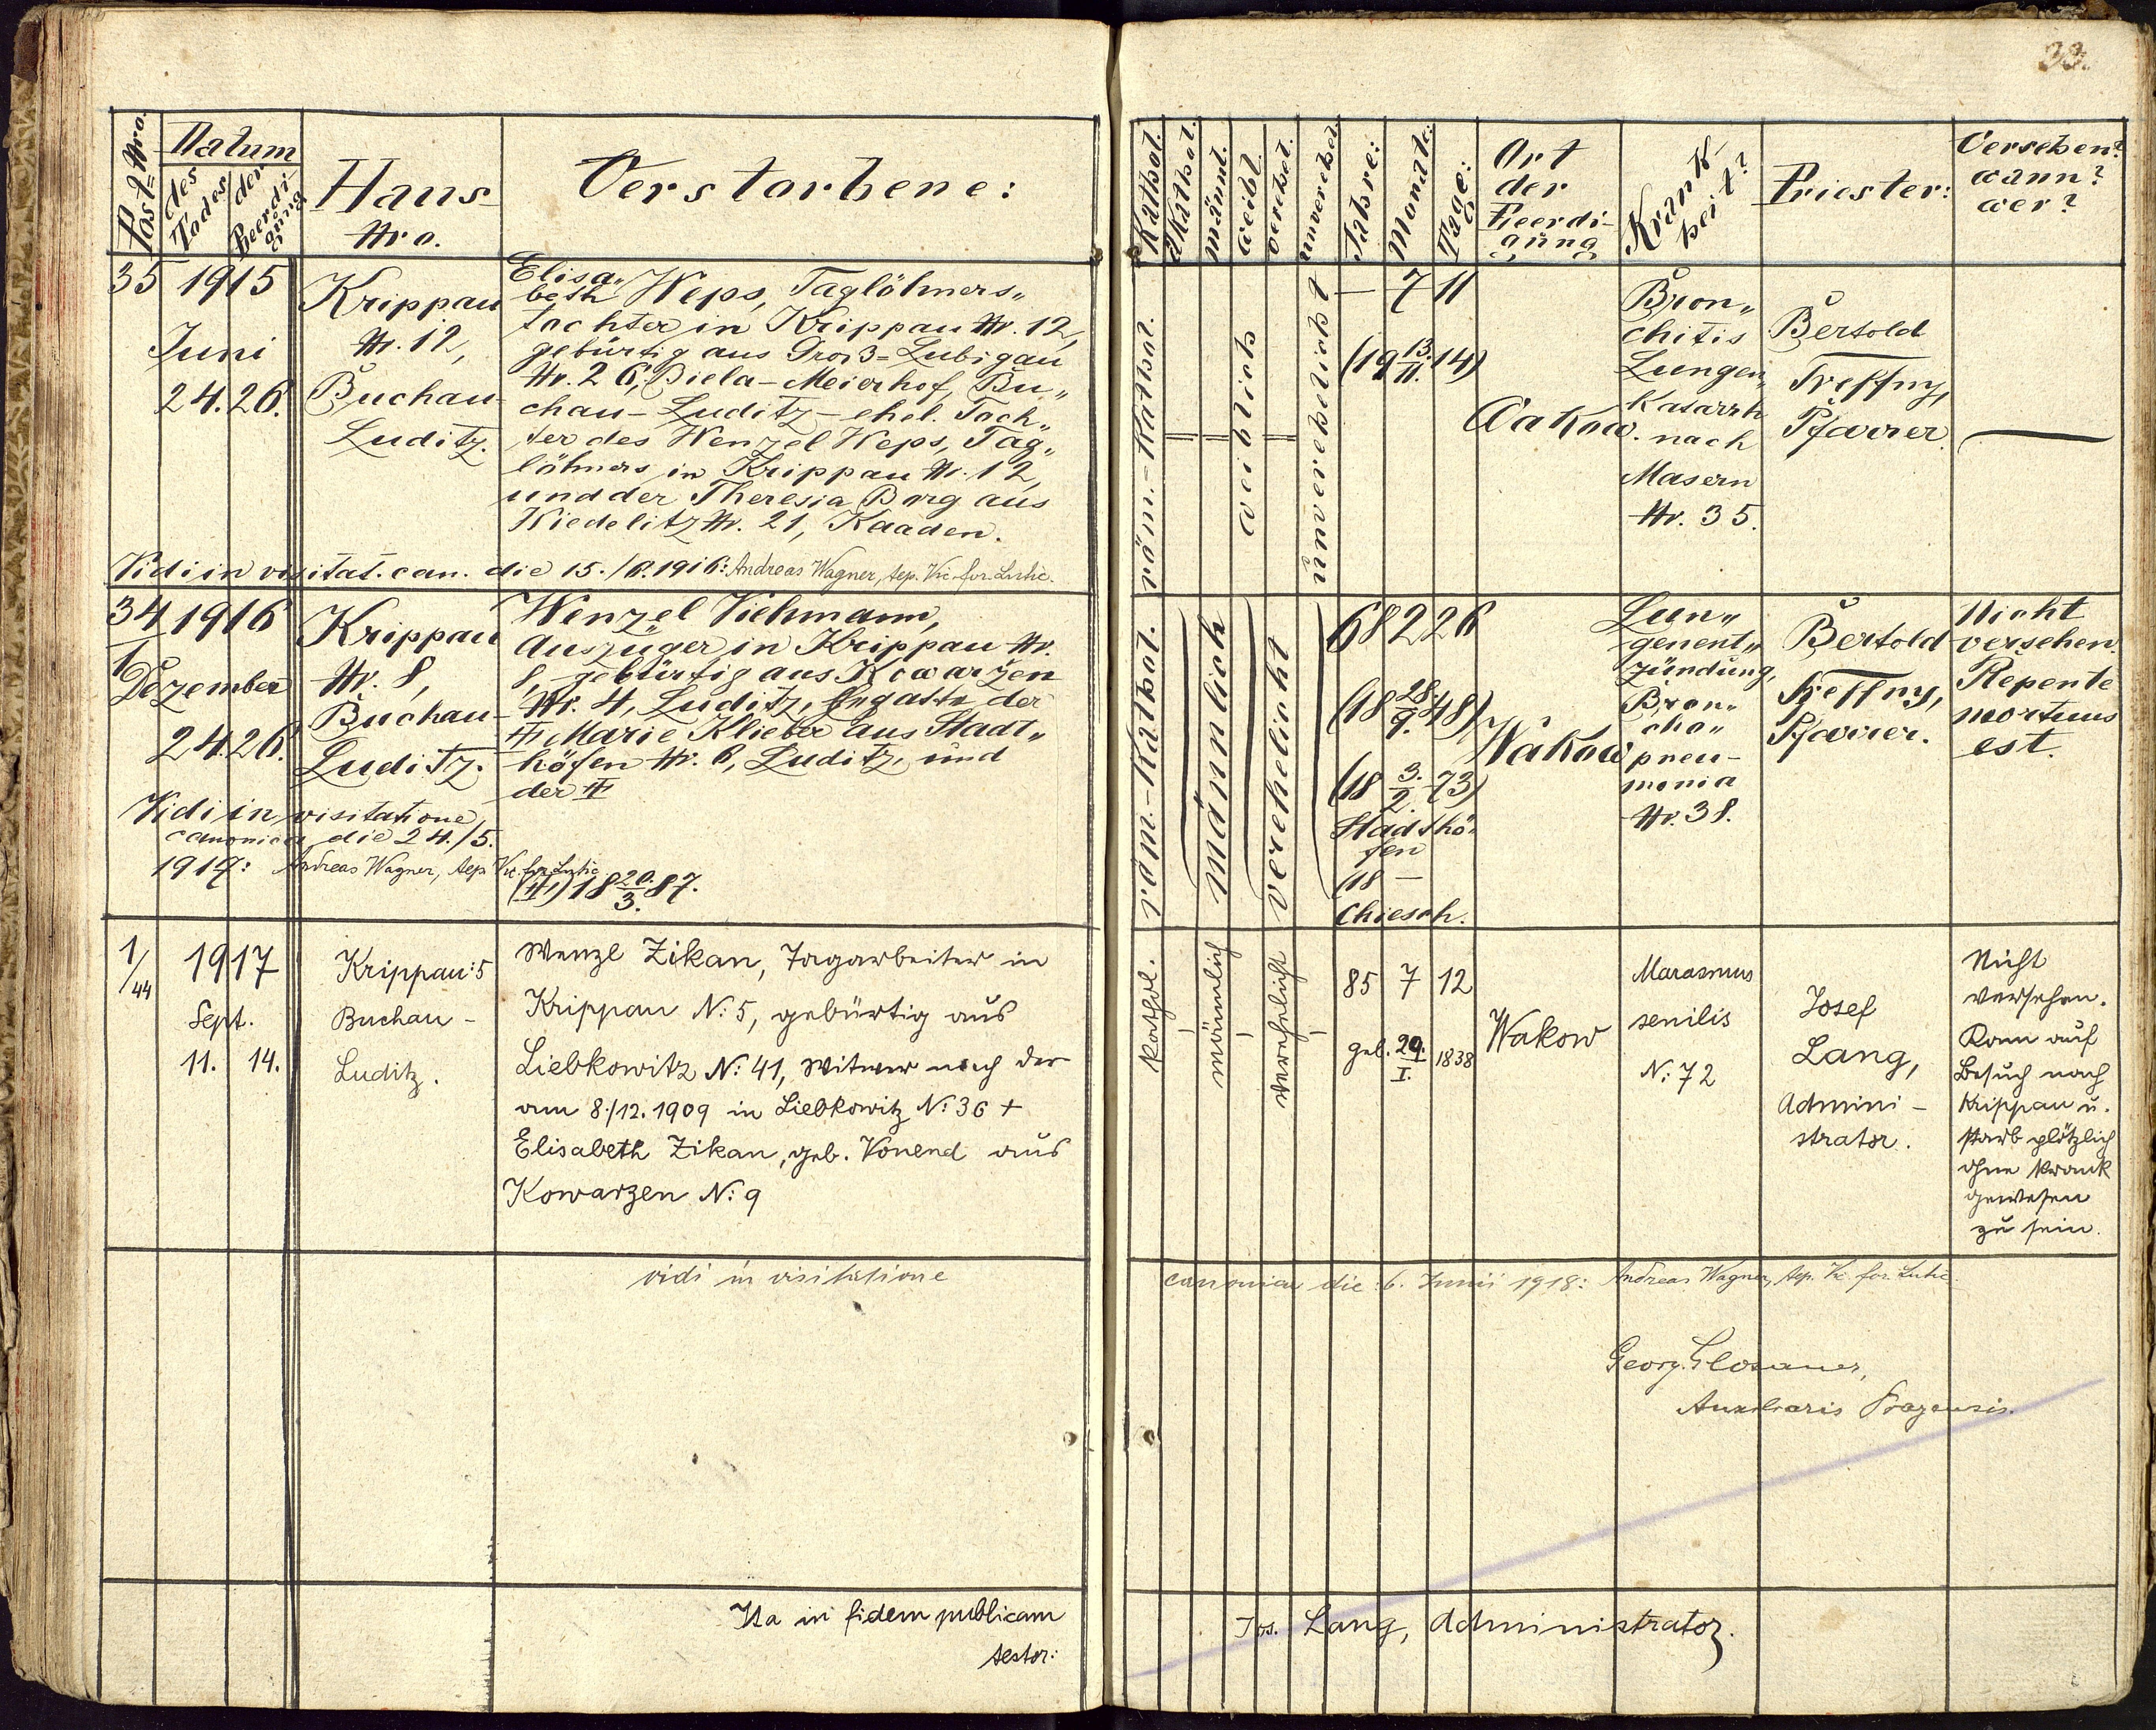 33.
Post-Nro.
Datum
des Todes
der Beerdigung
Haus
Nro.
Verstorbene:
Kathol.
akathol.
männl.
weibl.
verehel.
unverehel.
Jahre:
Monate:
Tage:
Ort
der
Beerdi-
gung
Krank-
heit?
Priester:
Versehen?
wann?
wer?
35 1915
Juni
24. 26.
Krippau
Nr. 12,
Buchau-
Luditz.
Elisa„
beth Weps, Taglöhners„
tochter in Krippau Nr. 12,
gebürtig aus Groß-Lubigau
Nr. 26, Biela-Meierhof, Bu„
chau-Luditz - ehel. Toch„
ter des Wenzel Weps, Tag„
löhners in Krippau Nr. 12,
und der Theresia Borg aus
Wiedelitz Nr. 21, Kaaden.
röm.-kathol.
weiblich
unverehelicht
— 7 11
(19 13./11. 14)
Wakow.
Bron„
chitis
Lungen„
katarrh
nach
Masern
Nr. 35.
Bertold
Treffny,
Pfarrer.
—
Vidi in visitat. can. die 15./6. 1916: Andreas Wagner, Aep. Vic. for. Lutic.
34 1916
1
Dezember
24. 26.
Krippau
Nr. 8,
Buchau-
Luditz.
Wenzel Viehmann,
Auszüger in Krippau Nr.
8, gebürtig aus Kowarzen
Nr. 4, Luditz, Gegatte der
# Marie Klieber aus Stadt„
höfen Nr. 6, Luditz, und
der #
röm.-kathol.
männlich
verehelicht
68 2 26
(18 28./9. 48)
(18 3./2. 73)
Stadthö-
fen
(18 —
Chiesch.
Wakow
Lun„
genent„
zündung,
Bron„
cho„
pneu-
monia
Nr. 38.
Bertold
Treffny,
Pfarrer.
Nicht
versehen.
Repente
mortuus
est.
Vidi in visitatione
canonica die 24./5.
1917: Andreas Wagner, Aep. Vic. for. Lutic.
(#) 18 20./3. 87.
1/44
1917
Sept.
11. 14.
Krippau: 5
Buchau -
Luditz.
Wenzl Zikan, Tagarbeiter in
Krippau N: 5, gebürtig aus
Liebkowitz N: 41, Witwer nach der
am 8./12. 1909 in Liebkowitz N: 36 +
Elisabeth Zikan, geb. Vonend aus
Kowarzen N: 9
kathol.
männlich
verehelicht
85 7 12
geb. 29./I. 1838
Wakow
Marasmus
senilis
N: 72
Josef
Lang,
Admini-
strator.
Nicht
versehen.
Kam auf
Besuch nach
Krippau u.
starb plötzlich
ohne krank
gewesen
zu sein.
vidi in visitatione canonica die 6. Junii 1918: Andreas Wagner, Aep. Vic. for. Lutic.
Georg. Glosauer,
Auxiliaris Pragensis.
Ita in fidem publicam
testor:
Jos. Lang, Administrator.